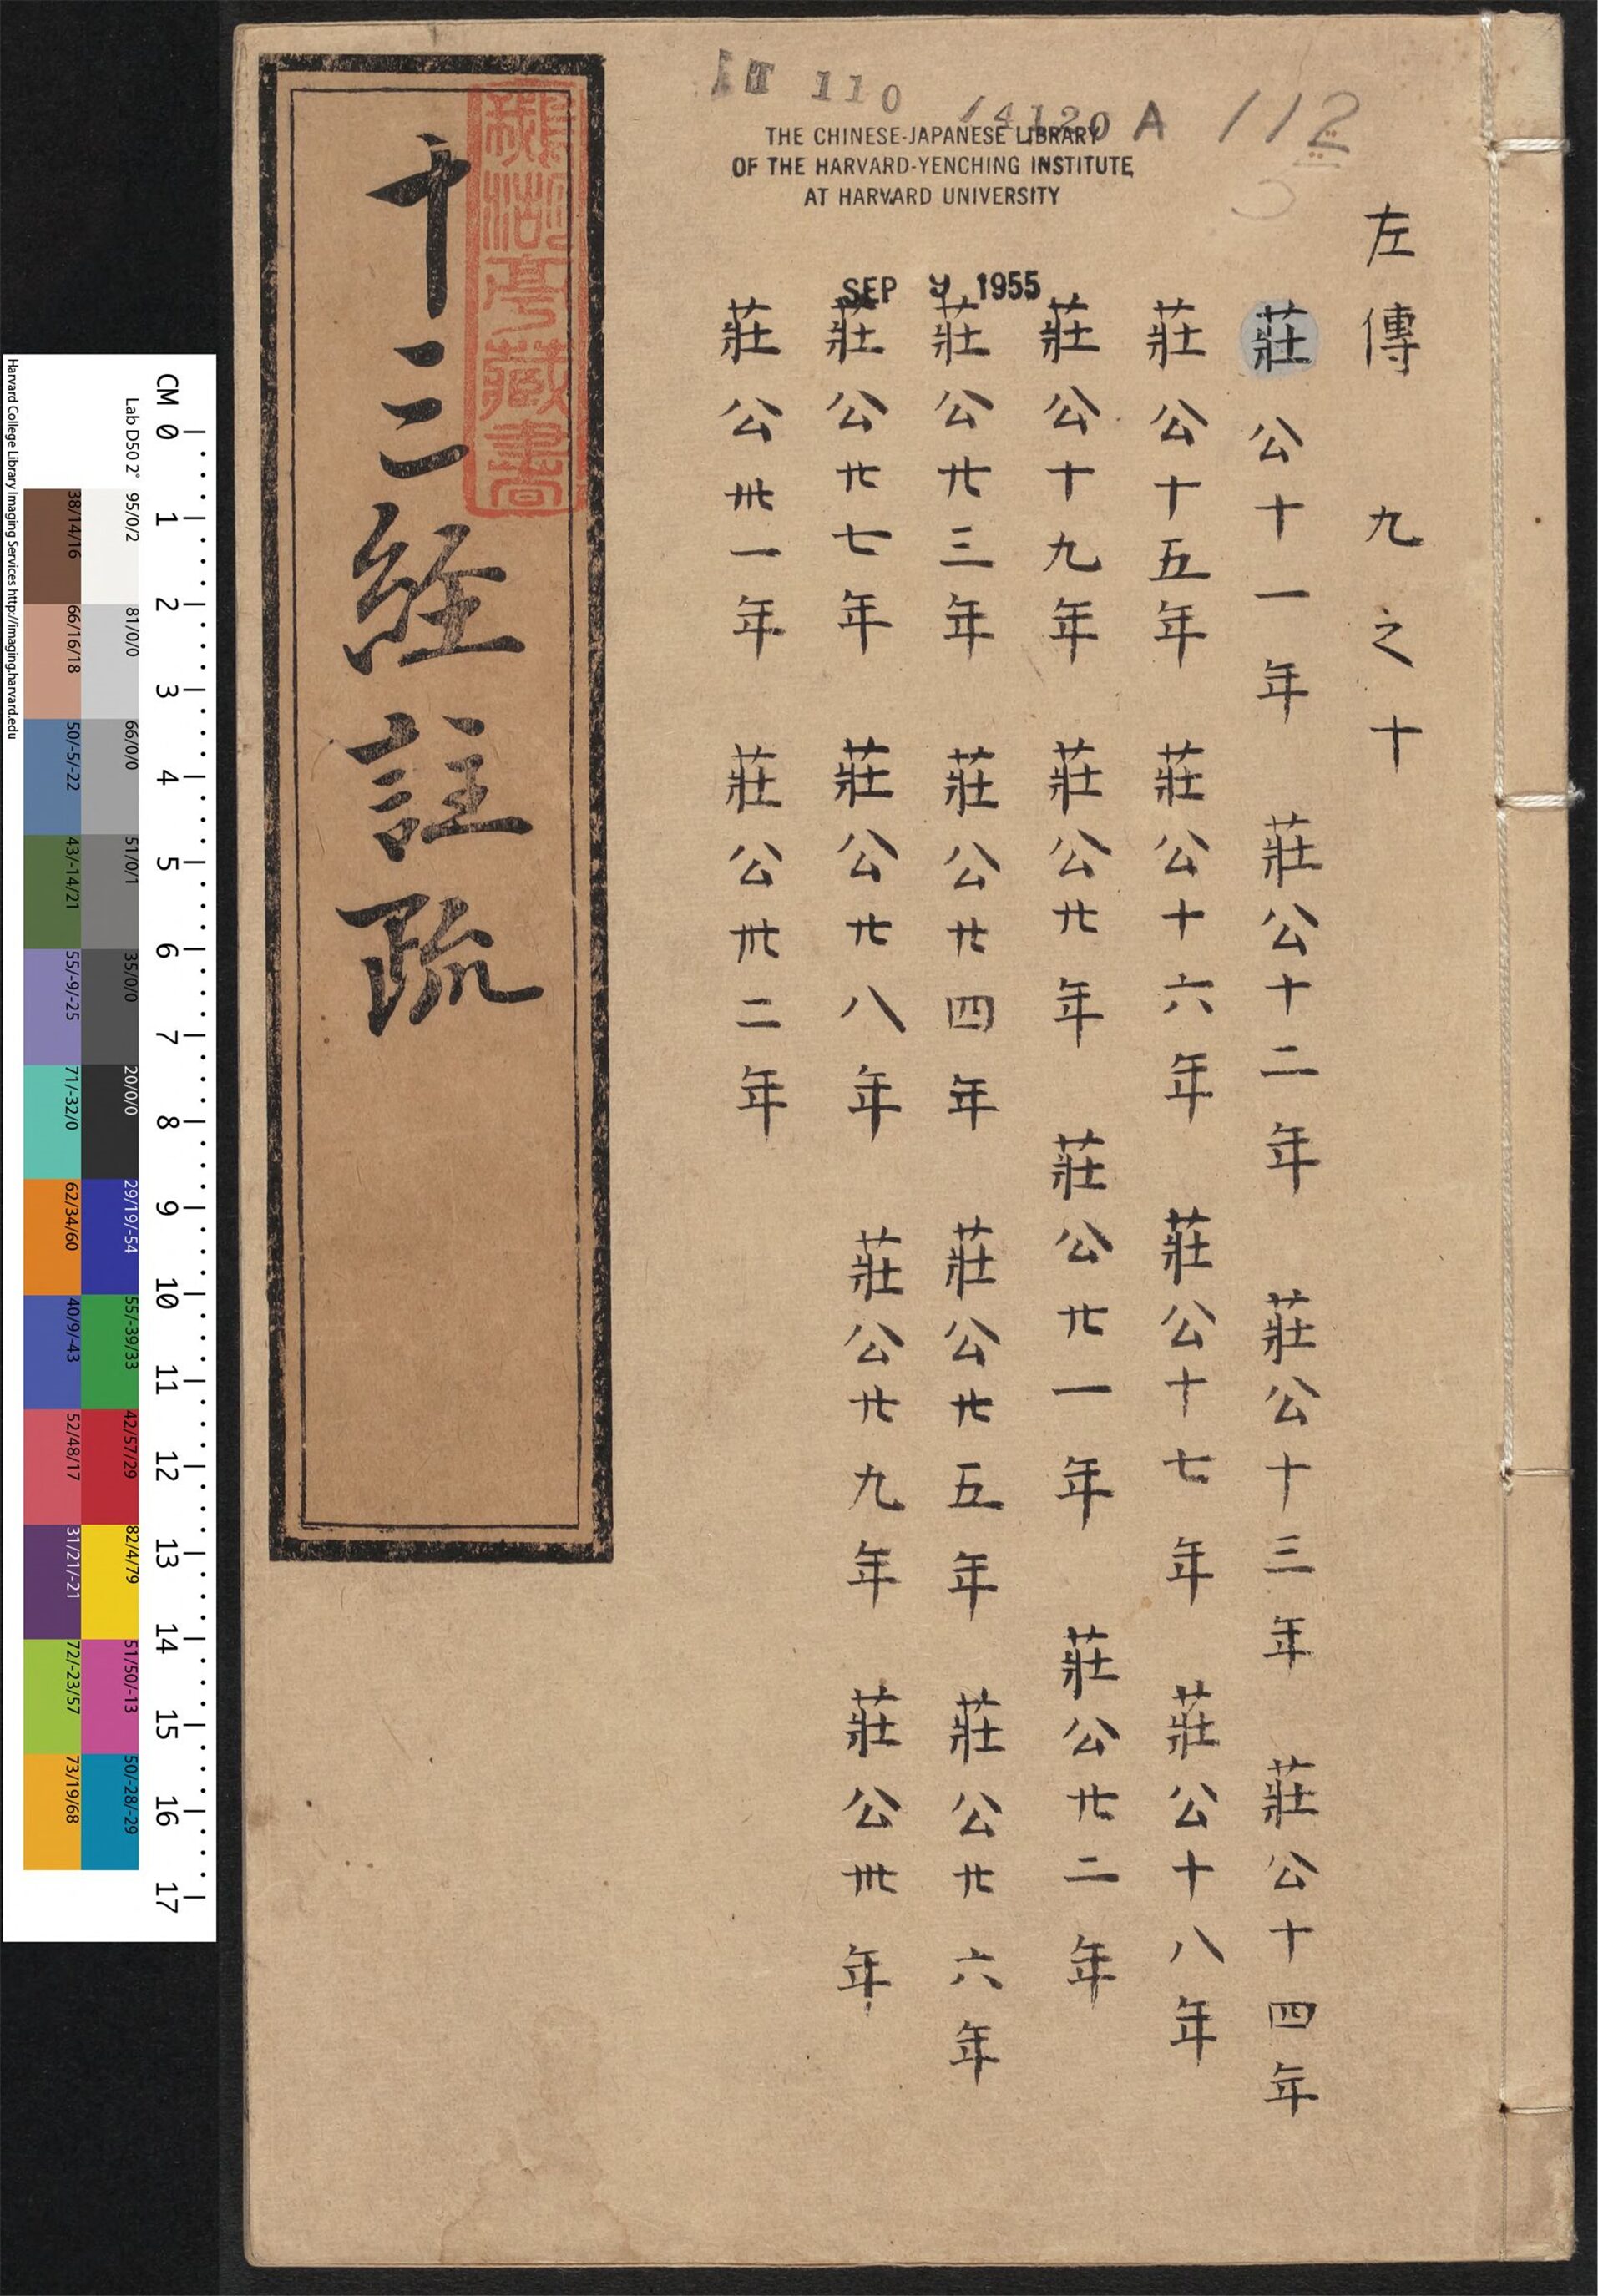 左傳 九之十
莊公十一年 莊公十二年 莊公十三年 莊公十四年
莊公十五年 莊公十六年 莊公十七年 莊公十八年
莊公十九年 莊公廿年 莊公廿一年 莊公廿二年
莊公廿三年 莊公廿四年 莊公廿五年 莊公廿六年
莊公廿七年 莊公廿八年 莊公廿九年 莊公卅年
莊公卅一年 莊公卅二年
110 14120 A 112
THE CHINESE-JAPANESE LIBRARY
OF THE HARVARD-YENCHING INSTITUTE
AT HARVARD UNIVERSITY
SEP 1955
十三經註疏
亭藏書
CM 0 1 2 3 4 5 6 7 8 9 10 11 12 13 14 15 16 17
Lab D50 2° 95/0/2 81/0/0 66/0/0 51/0/1 35/0/0 20/0/0 29/19/-54 55/-39/33 42/57/29 82/4/79 51/50/-13 50/-28/-29
38/14/16 66/16/18 50/-5/-22 43/-14/21 55/-9/-25 71/-32/0 62/34/60 40/9/-43 52/48/17 31/21/-21 72/-23/57 73/19/68
Harvard College Library Imaging Services http://imaging.harvard.edu